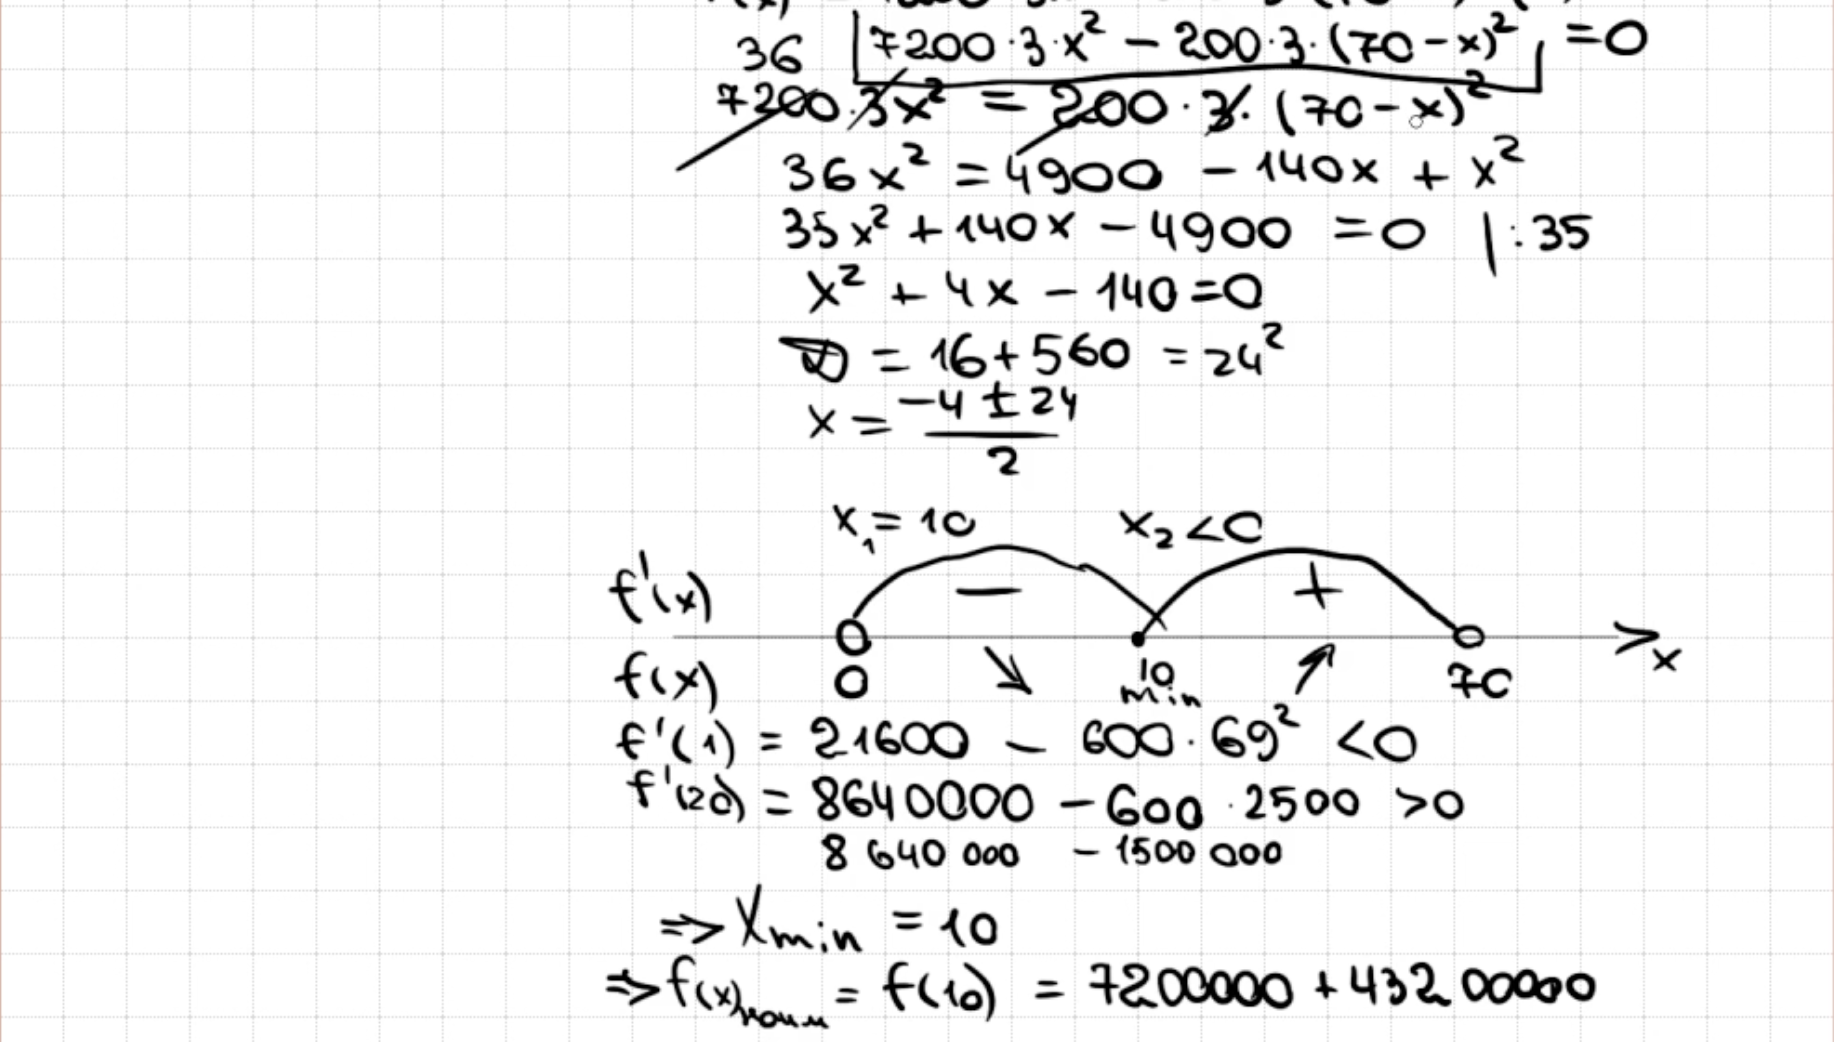 36
7200·3·x² − 200·3·(70−x)² =0
7200·3x² = 200·3·(70−x)²
36x² = 4900 − 140x + x²
35x² + 140x − 4900 = 0 |:35
x² + 4x − 140=0
D = 16+560 = 24²
x = (−4 ± 24)/2
x₁ = 10 x₂ <0
f'(x) − +
0 10 70 x
f(x) ↘ min ↗
f'(1) = 21600 − 600·69² <0
f'(20) = 8640000 − 600·2500 >0
8 640 000 − 1500 000
⇒ Xmin = 10
⇒ f(x)наим = f(10) = 7200000 + 43200000